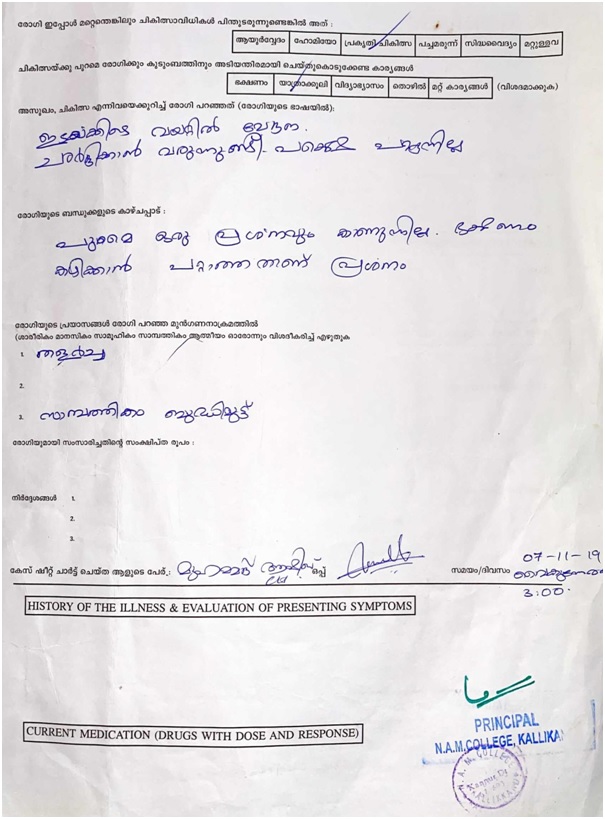 രോഗി ഇപ്പോൾ മറ്റെന്തെങ്കിലും ചികിത്സാവിധികൾ പിന്തുടരുന്നുണ്ടെങ്കിൽ അത് :
ആയുർവ്വേദം ഹോമിയോ പ്രകൃതി ചികിത്സ പച്ചമരുന്ന് സിദ്ധവൈദ്യം മറ്റുള്ളവ
ചികിത്സയ്ക്കു പുറമെ രോഗിക്കും കുടുംബത്തിനും അടിയന്തിരമായി ചെയ്തുകൊടുക്കേണ്ട കാര്യങ്ങൾ
ഭക്ഷണം യാത്രാക്കൂലി വിദ്യാഭ്യാസം തൊഴിൽ മറ്റ് കാര്യങ്ങൾ (വിശദമാക്കുക)
അസുഖം, ചികിത്സ എന്നിവയെക്കുറിച്ച് രോഗി പറഞ്ഞത് (രോഗിയുടെ ഭാഷയിൽ):
ഇടയ്ക്കിടെ വയറ്റിൽ വേദന.
ഛർദ്ദിക്കാൻ വരുന്നുണ്ട്. പക്ഷെ പറ്റുന്നില്ല
രോഗിയുടെ ബന്ധുക്കളുടെ കാഴ്ചപ്പാട് :
പുറമെ ഒരു പ്രശ്നവും കാണുന്നില്ല. ഭക്ഷണം
കഴിക്കാൻ പറ്റാത്തതാണ് പ്രശ്നം
രോഗിയുടെ പ്രയാസങ്ങൾ രോഗി പറഞ്ഞ മുൻഗണനാക്രമത്തിൽ
(ശാരീരികം മാനസികം സാമൂഹികം സാമ്പത്തികം ആത്മീയം ഓരോന്നും വിശദീകരിച്ച് എഴുതുക
1. തളർച്ച
2.
3. സാമ്പത്തികം ബുദ്ധിമുട്ട്
രോഗിയുമായി സംസാരിച്ചതിന്റെ സംക്ഷിപ്ത രൂപം :
നിർദ്ദേശങ്ങൾ 1.
2.
3.
കേസ് ഷീറ്റ് ചാർട്ട് ചെയ്ത ആളുടെ പേര്.: മുഹമ്മദ് ഒപ്പ് സമയം/ദിവസം 07-11-19
വൈകുന്നേരം
3:00
HISTORY OF THE ILLNESS & EVALUATION OF PRESENTING SYMPTOMS
CURRENT MEDICATION (DRUGS WITH DOSE AND RESPONSE)
PRINCIPAL
N.A.M.COLLEGE, KALLIKAN
N. A. M. COLLEGE
Kannur Dt